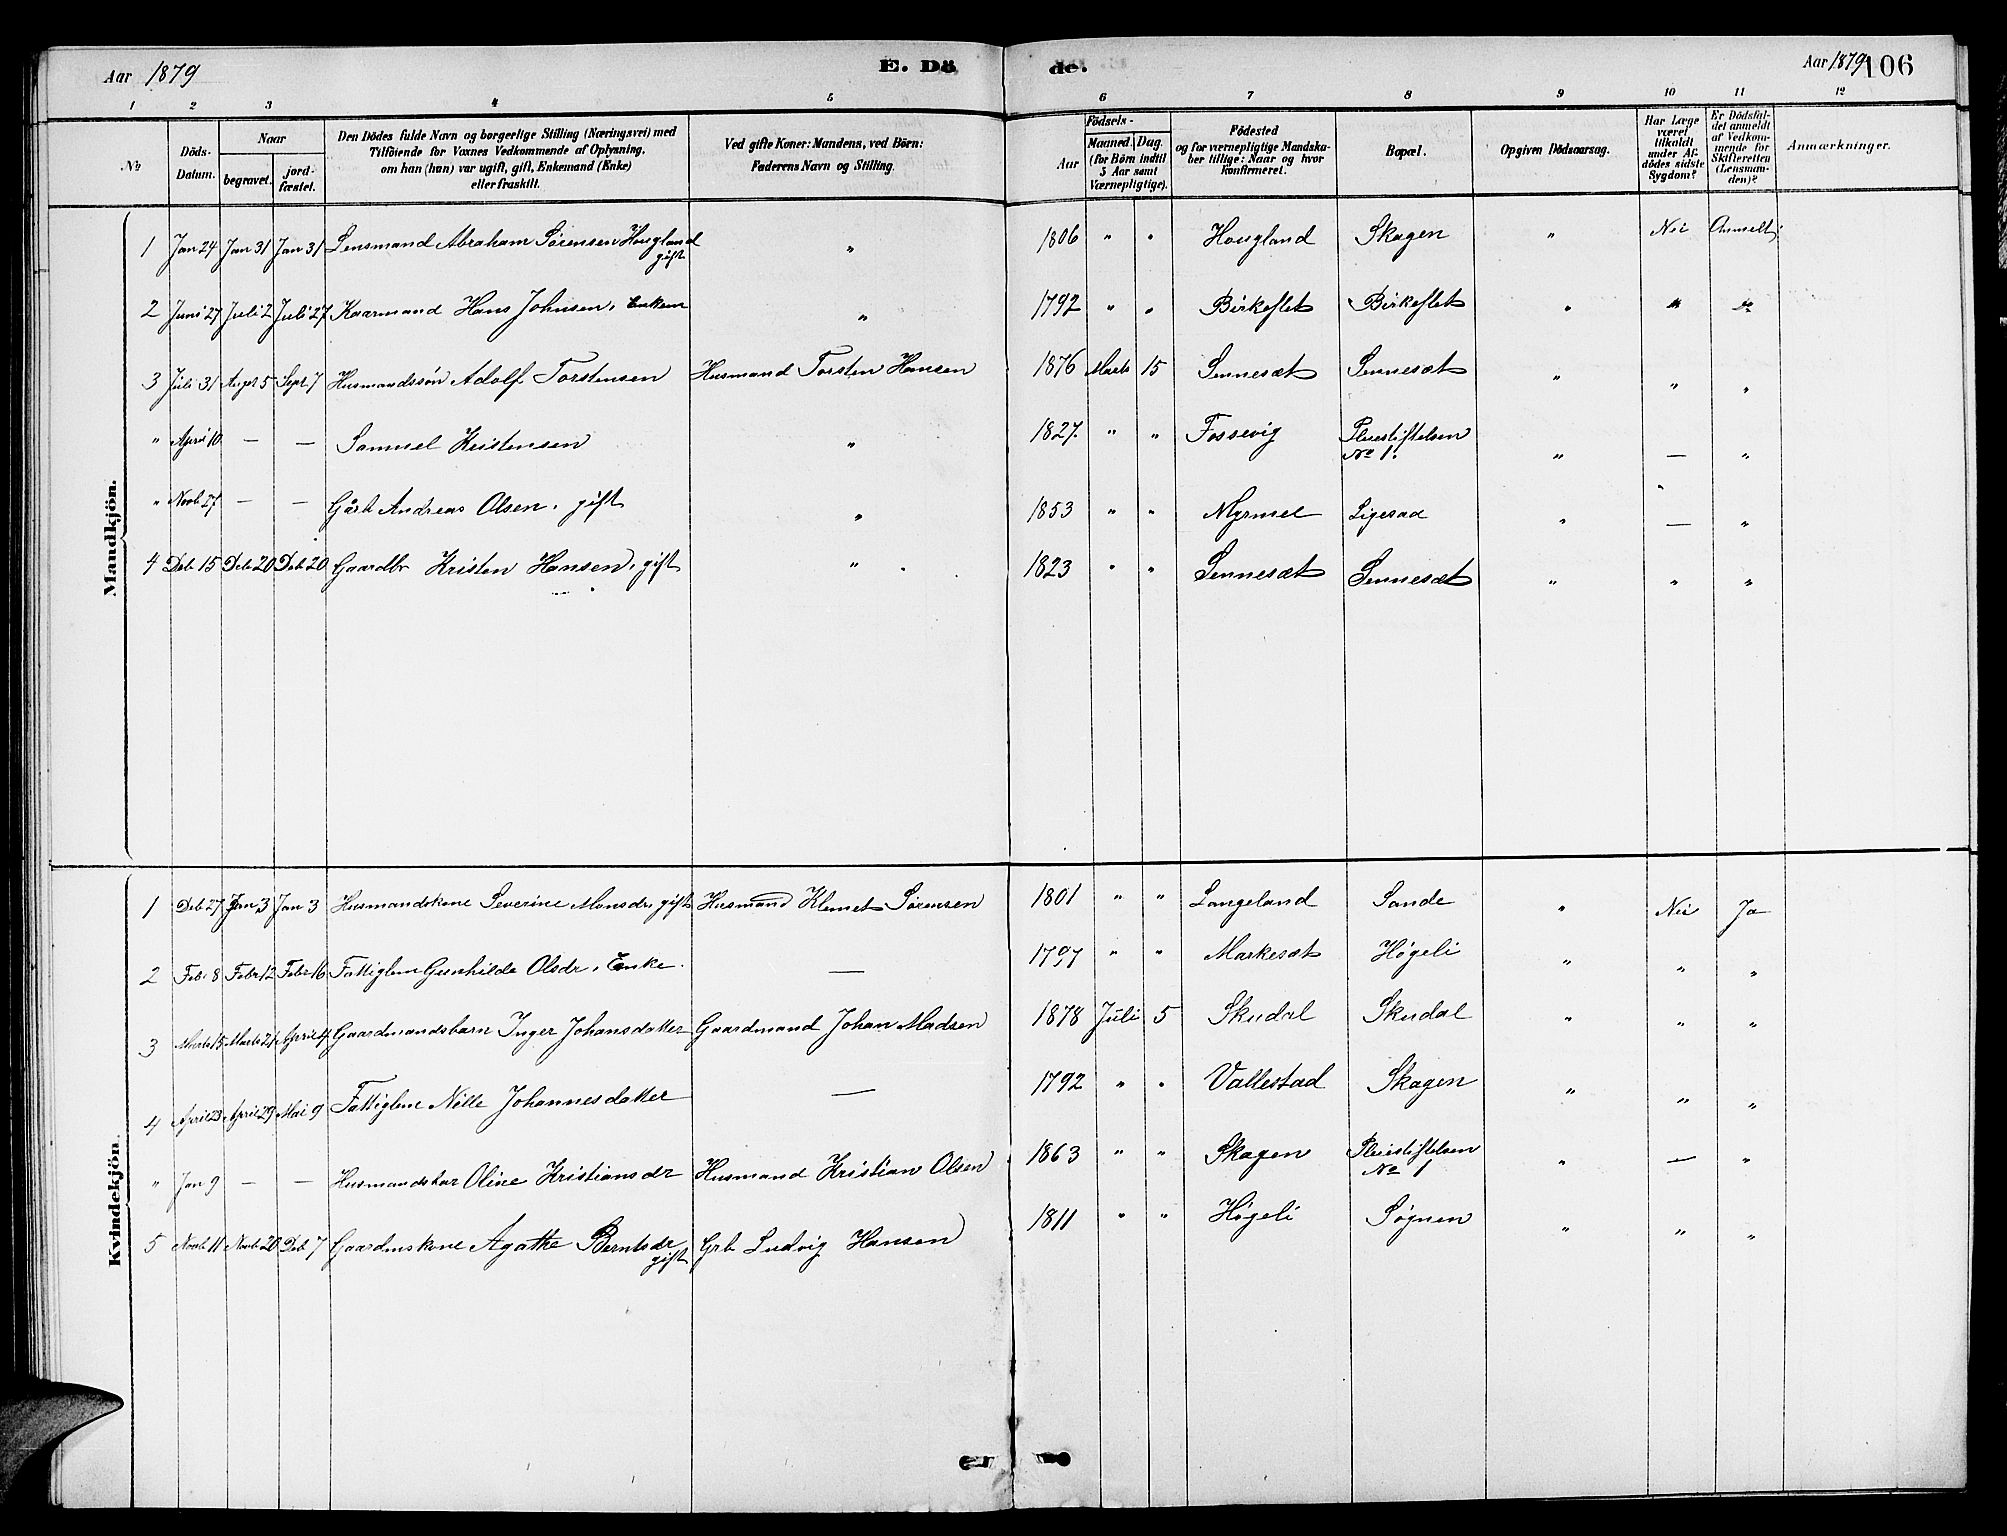 Aar 1879 E. Dö de. Aar 1879 106
1 2 3 4 5 6 7 8 9 10 11 12
No
Döds-Datum.
Naar
begravet.
jord-fæstet.
Den Dödes fulde Navn og borgerlige Stilling (Næringsvei) med
Tilföiende for Voxnes Vedkommende af Oplysning,
om han (hun) var ugift, gift, Enkemand (Enke)
eller fraskilt.
Ved gifte Koner: Mandens, ved Börn:
Faderens Navn og Stilling.
Födsels-
Aar
Maaned. Dag.
(for Børn indtil
5 Aar samt
Værnepligtige).
Födested
og for værnepligtige Mandska-
ber tillige: Naar og hvor
konfirmeret.
Bopæl.
Opgiven Dödsaarsag.
Har Læge
været
tilkaldt
under Af-
dödes sidste
Sygdom?
Er Dödsfal-
det anmeldt
af Vedkom-
mende for
Skifteretten
(Lensman-
den)?
Anmærkninger.
Mandkjön.
1 Jan 24 Jan 31 Jan 31 Lensmand Abraham Sørensen Hougland gift " 1806 " " Hougland Skagen " Nei Anmeldt
2 Juni 27 Juli 2 Juli 27 Kaarmand Hans Johnsen, Enkem " 1792 " " Birkeflet Birkeflet " " "
3 Juli 31 Augst 5 Sept 7 Husmandssøn Adolf Torstensen Husmand Torsten Hansen 1876 Marts 15 Sennesæt Sennesæt " " "
" April 10 — — Samuel Kristensen " 1827. " " Fossevig Pleiestiftelsen No 1. " — "
" Novb 27 — — Gårb Andreas Olsen, gift " 1853 " " Myrmel Ligesaa " — "
4 Deb 15 Deb 20 Deb 20 Gaardbr Kristen Hansen, gift " 1823 " " Sennesæt Sennesæt " " "
Kvindekjön.
1 Deb 27 Jan 3 Jan 3 Husmandskone Severine Monsdr, gift Husmand Klemet Sørensen 1801 " " Langeland Sande " Nei Ja
2 Feb 8 Febr 12 Febr 16 Fattiglem Gunhilde Olsdr, Enke. — 1797 " " Markesæt Høgeli " " "
3 Marts 15 Marts 21 April 14 Gaardmandsbarn Inger Johansdatter Gaardmand Johan Madsen 1878 Juli 5 Skudal Skudal " " "
4 April 23 April 29 Mai 9 Fattiglem Nille Johannesdatter — 1792 " " Vallestad Skagen " " "
" Jan 9 — — Husmandsbar Oline Kristiansdr Husmand Kristian Olsen 1863 " " Skagen Pleiestiftelsen No 1 " — "
5 Novb 11 Novb 20 Deb 7 Gaardmskone Agathe Berntsdr gift Grb Ludvig Hansen 1811 " " Høgeli Søgnen " " "